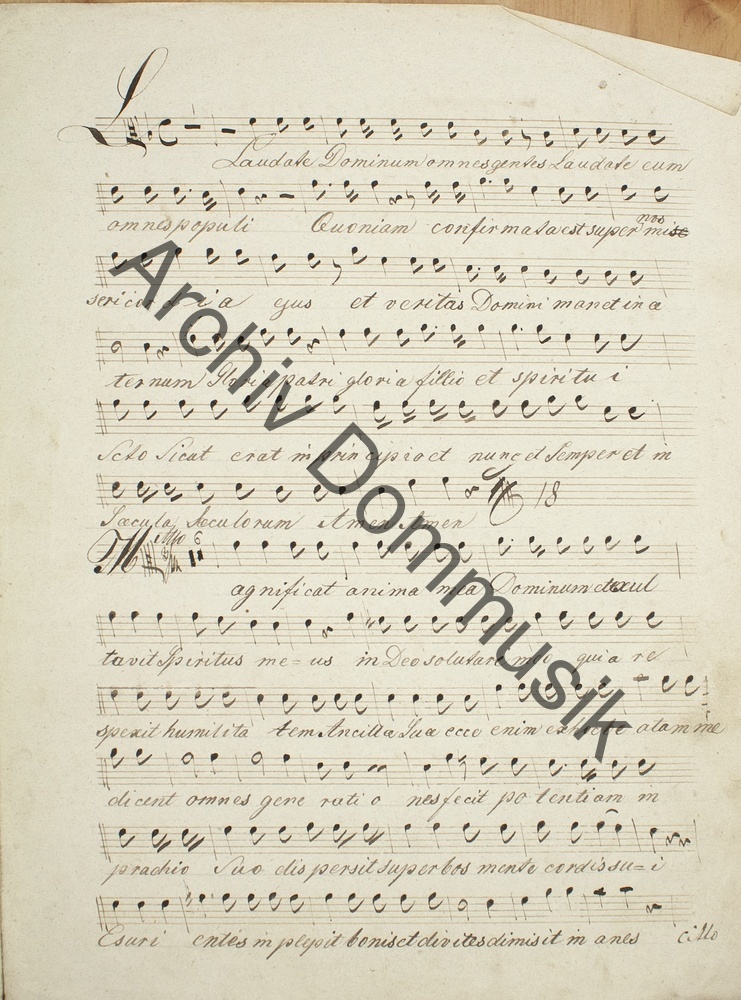 Laudate Dominum omnes gentes Laudate eum
omnes populi Quoniam confirmata est super nos mise
sericordia ejus et veritas Domini manet in æ
ternum Gloria patri gloria fillio et spiritu i
Scto Sicut erat in principio et nunc et Semper et in
Sæcula Sæculorum Amen Amen 18
Allo 6
Magnificat anima mea Dominum et exul
tavit Spiritus me=us in Deo solutare meo quia re
spexit humilita tem Ancillæ Suæ ecce enim ex hoc be atam me
dicent omnes gene rati o nes fecit po tentiam in
prachio Suo dis persit superbos mente cordis su=i
Esuri entes implevit bonis et divites dimisit in anes
Archiv Dommusik